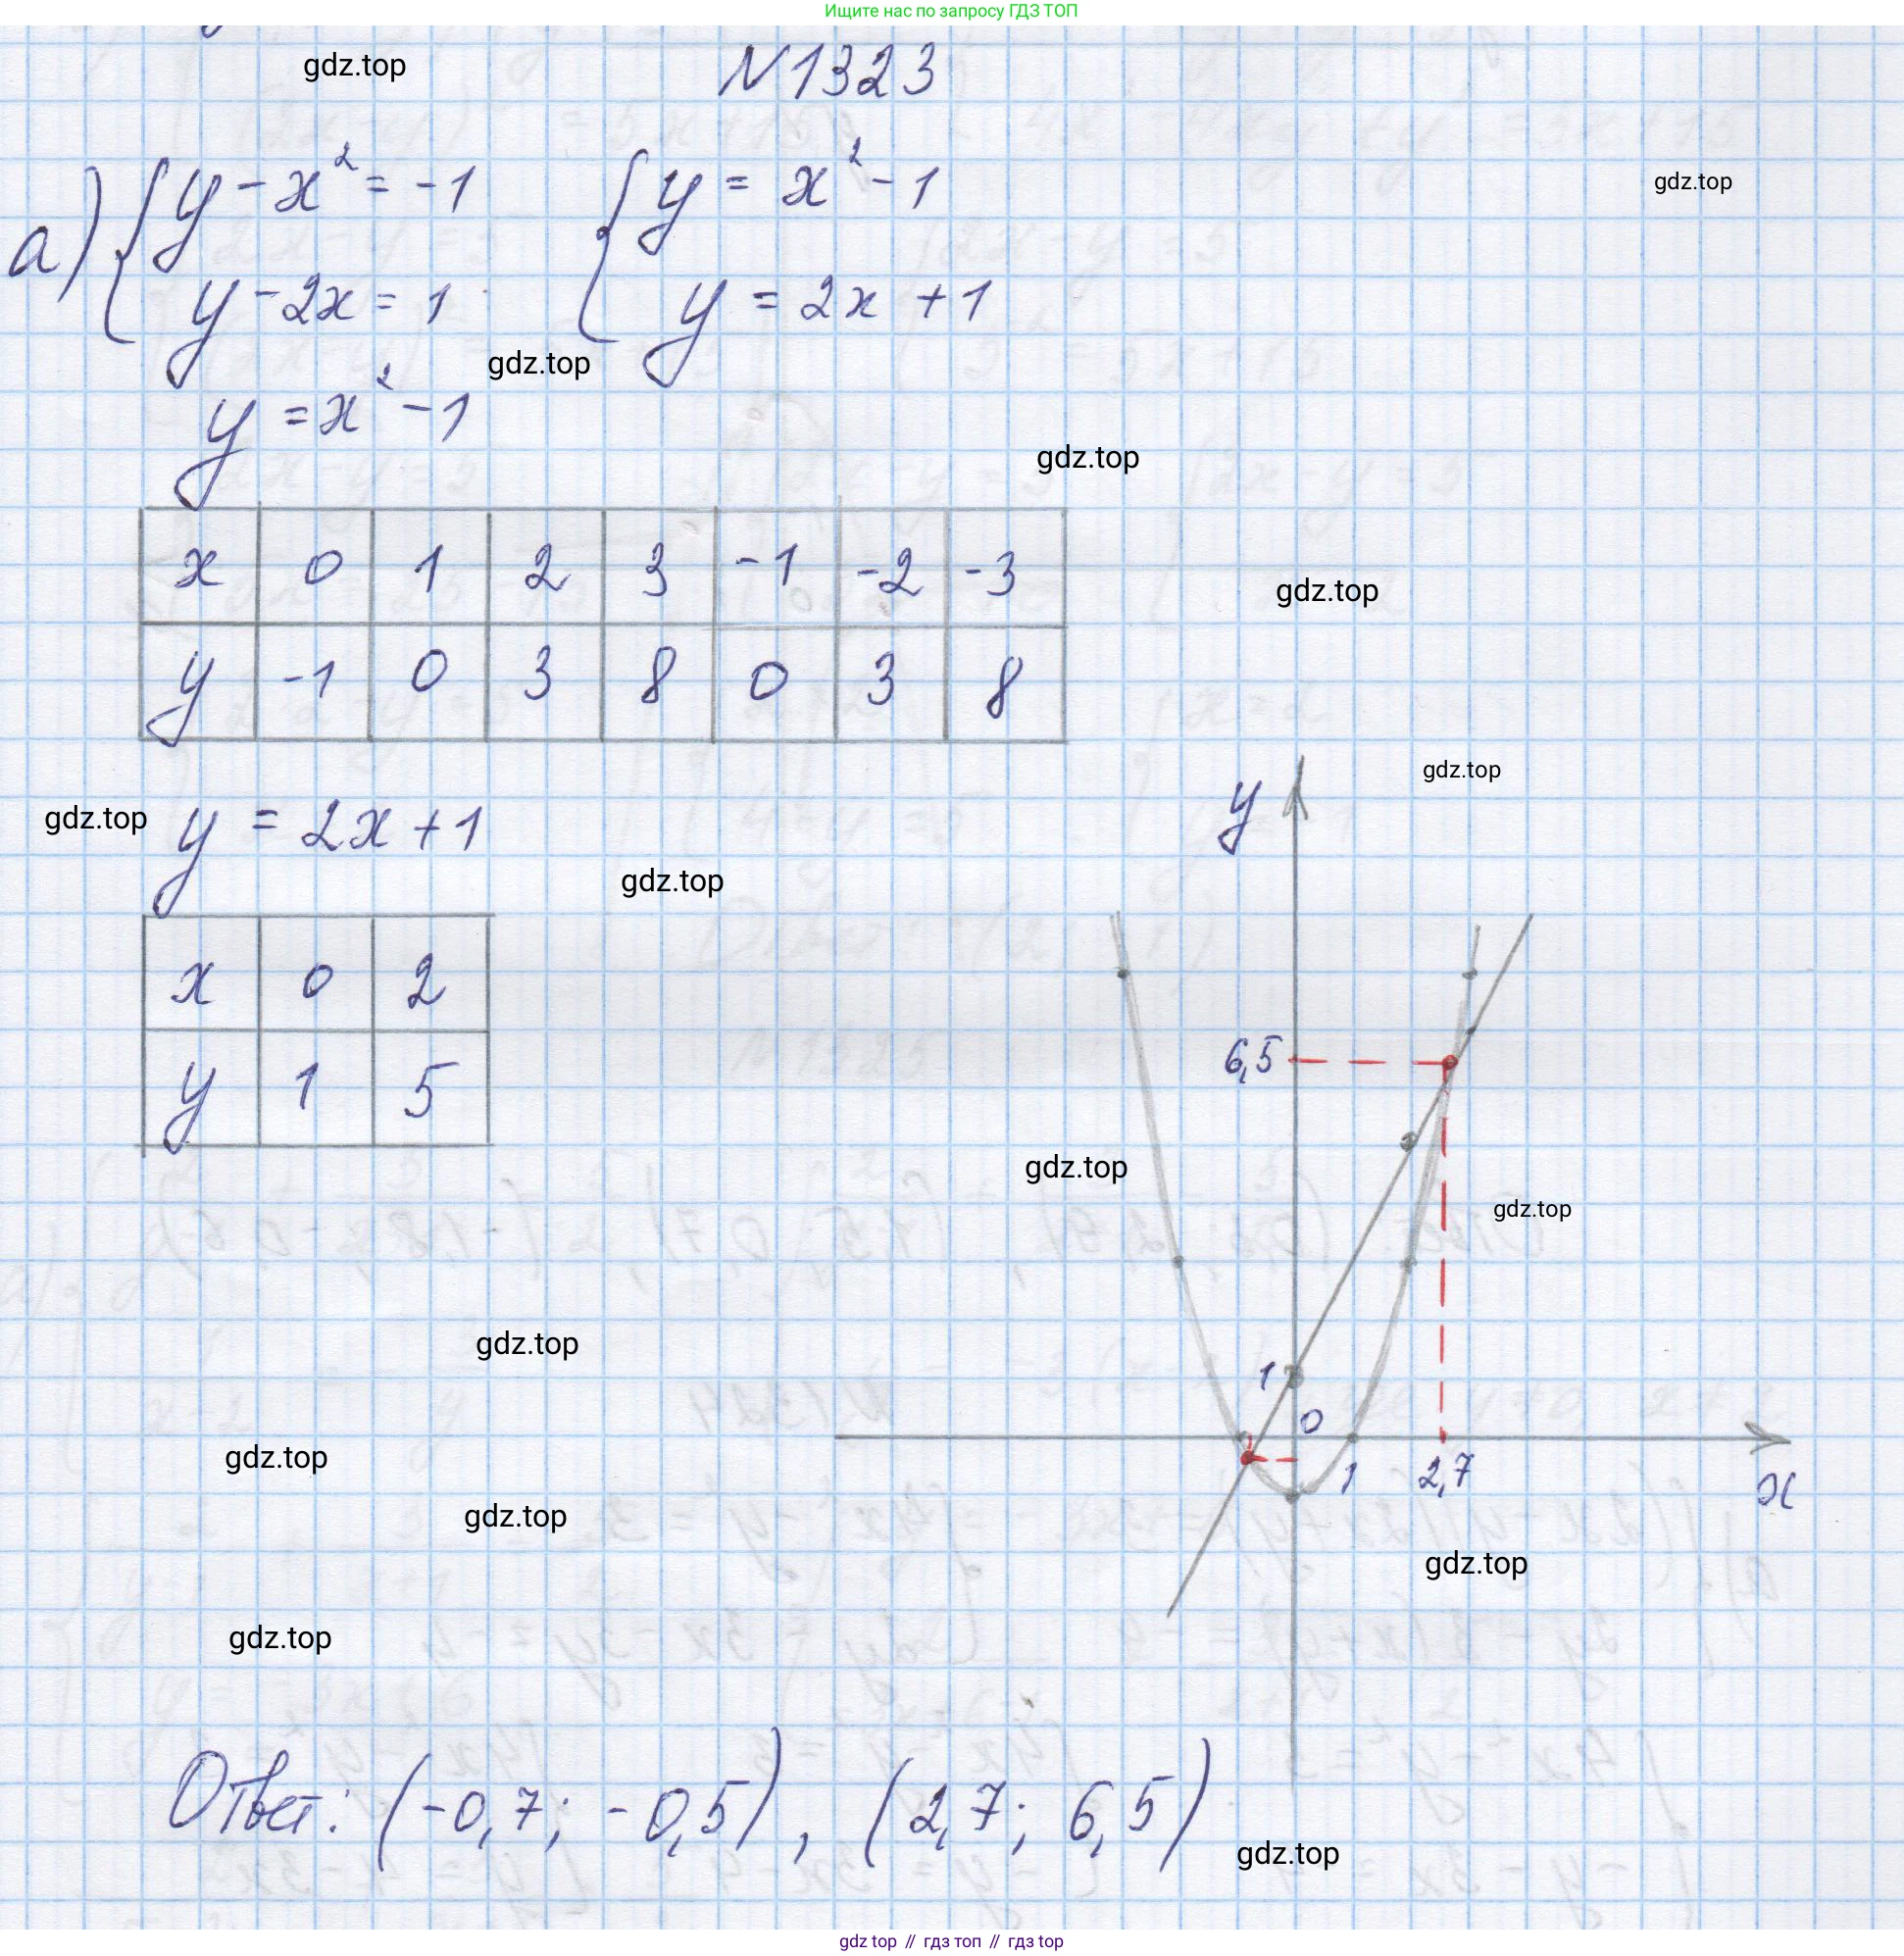 Ищите нас по запросу ГДЗ ТОП
gdz.top
N1323
gdz.top
а) { y - x² = -1 { y = x² - 1
y - 2x = 1 y = 2x + 1
gdz.top
y = x² - 1
gdz.top
x 0 1 2 3 -1 -2 -3
gdz.top
y -1 0 3 8 0 3 8
gdz.top
y
gdz.top
y = 2x + 1
gdz.top
x 0 2
y 1 5
6,5
gdz.top
gdz.top
gdz.top
1
0
gdz.top
1 2,7
x
gdz.top
gdz.top
gdz.top
Ответ: (-0,7; -0,5), (2,7; 6,5)
gdz.top
gdz top // гдз топ // гдз top